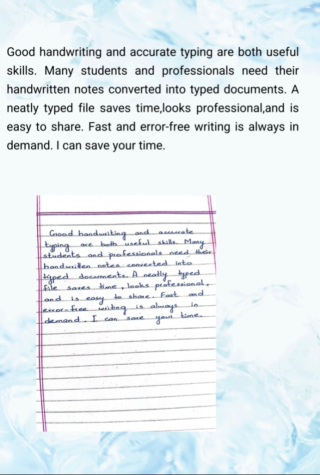 Good handwriting and accurate typing are both useful
skills. Many students and professionals need their
handwritten notes converted into typed documents. A
neatly typed file saves time,looks professional,and is
easy to share. Fast and error-free writing is always in
demand. I can save your time.
Good handwriting and accurate
typing are both useful skills. Many
students and professionals need their
handwritten notes converted into
typed documents. A neatly typed
file saves time, looks professional,
and is easy to share. Fast and
error-free writing is always in
demand. I can save your time.